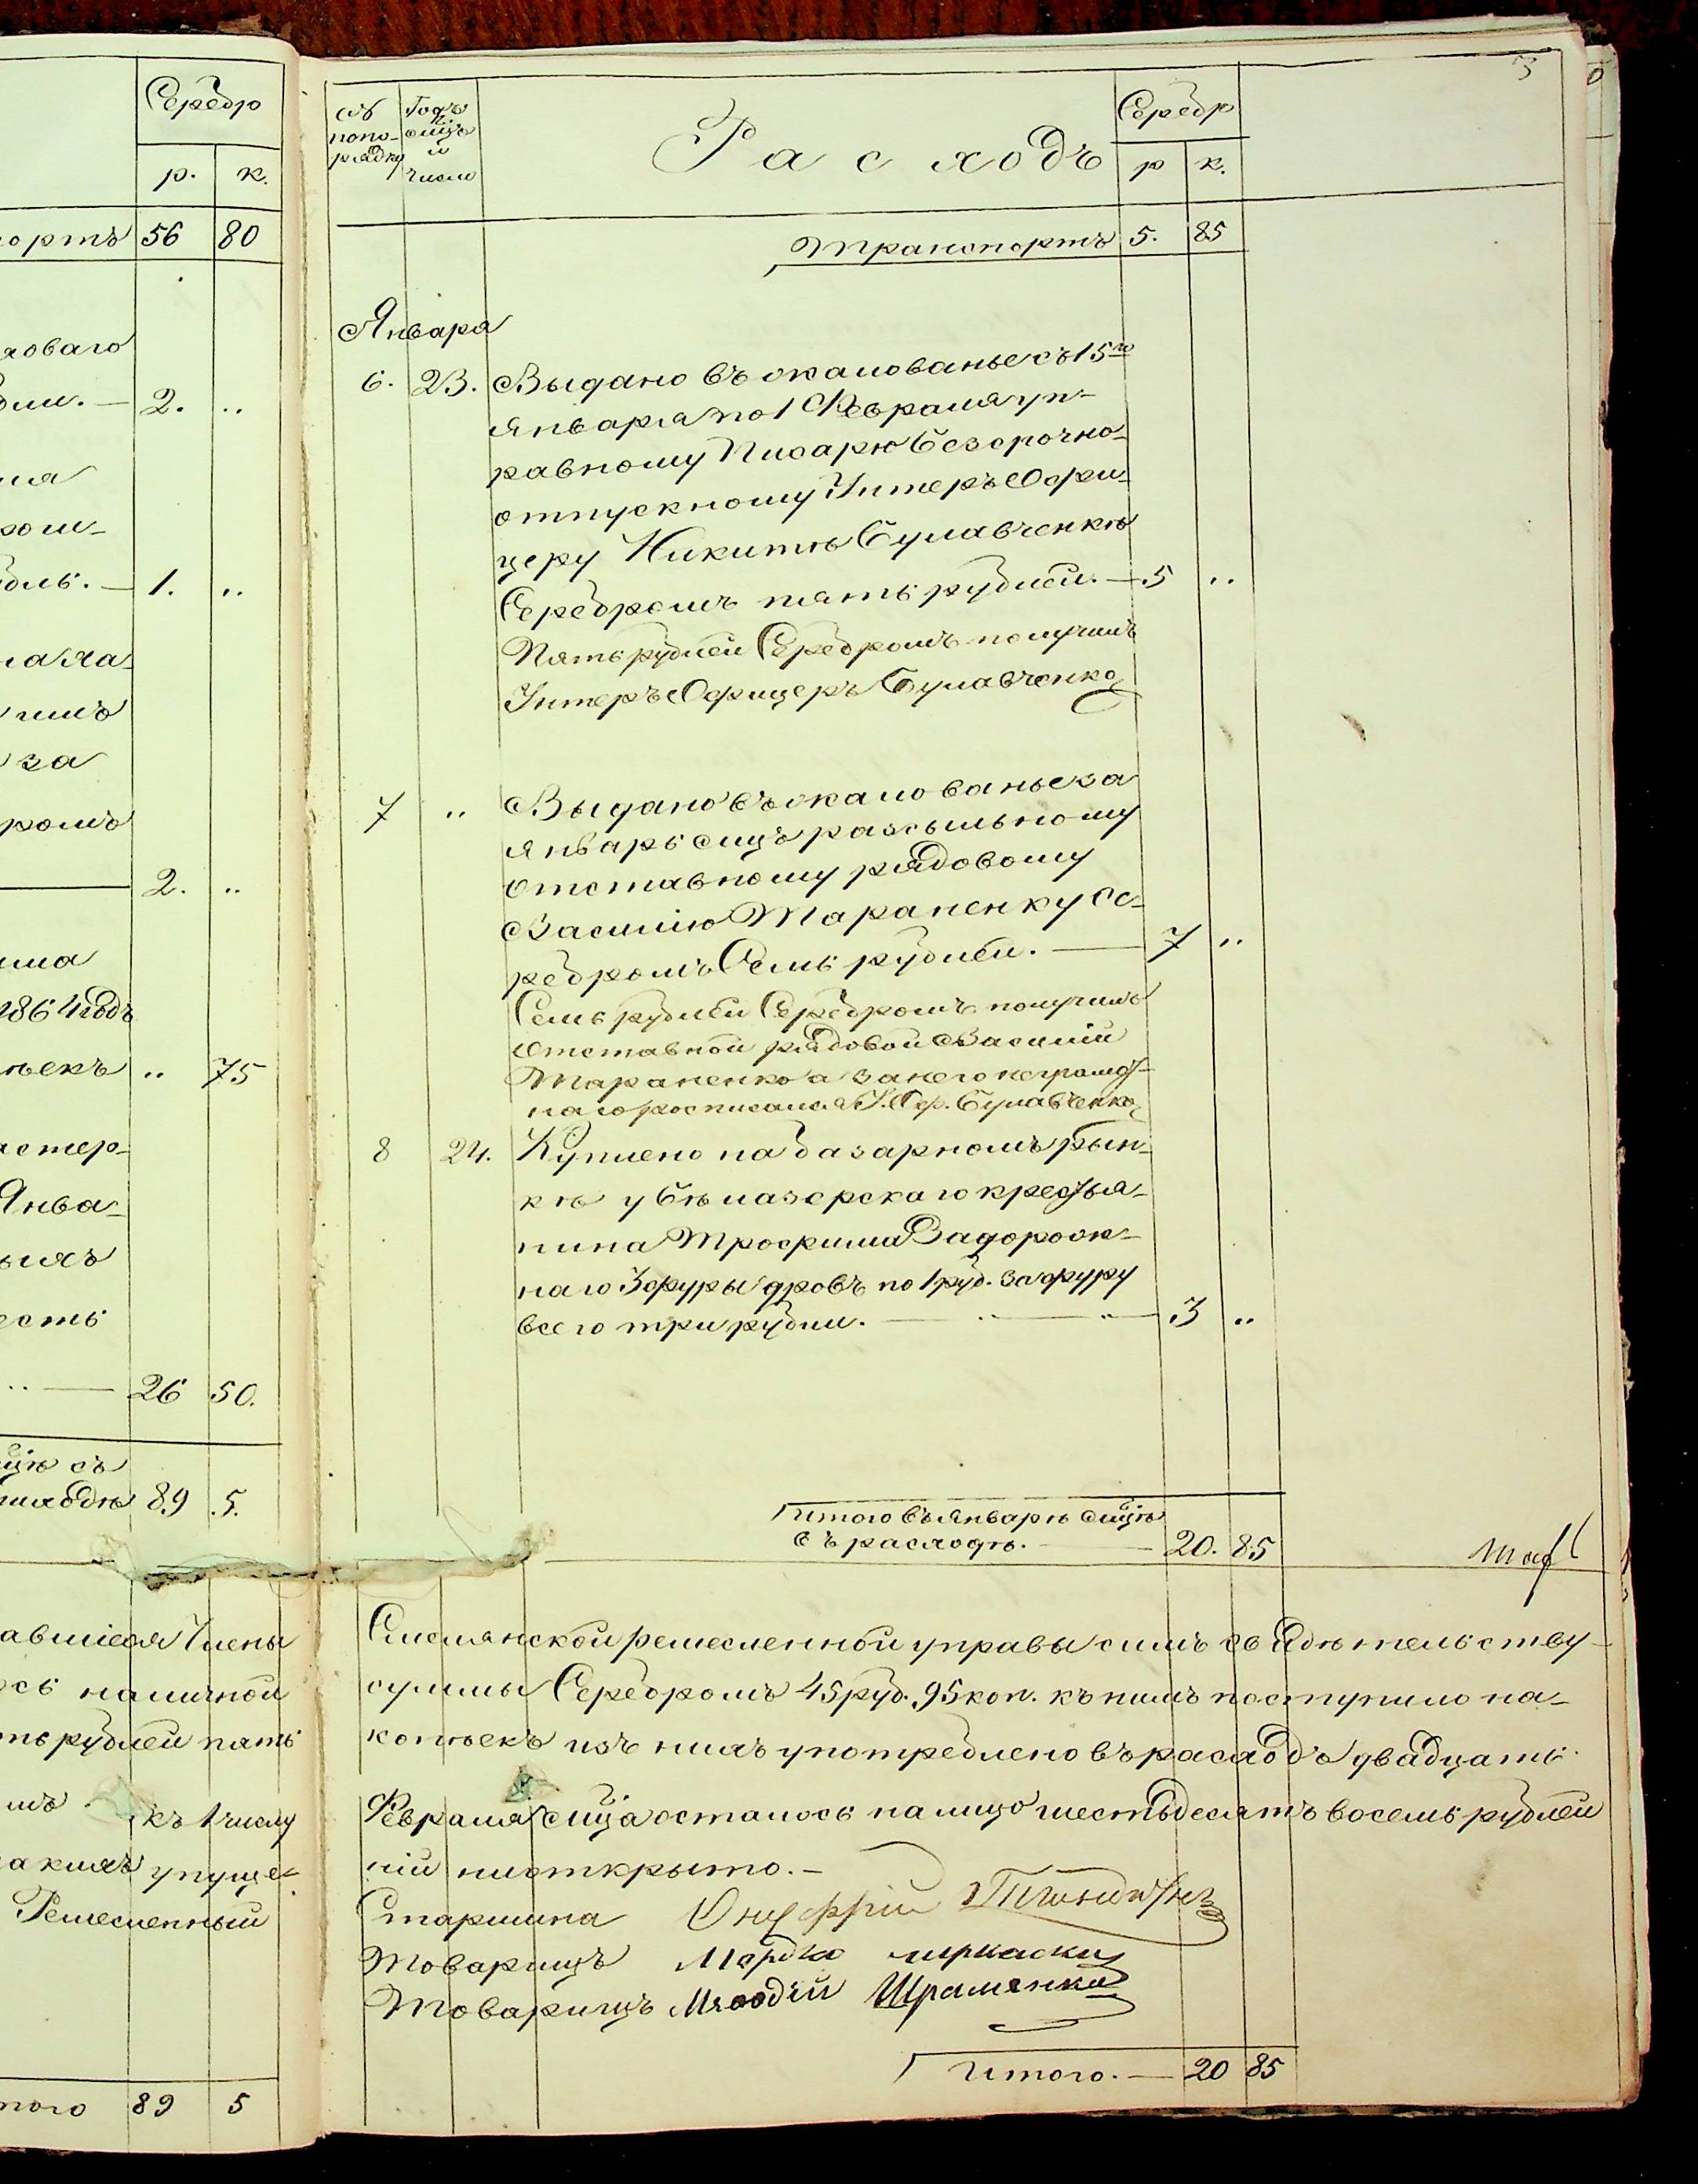 Серебро
р. к.
ортъ 56 80
ховаго
2. ..
1. ..
за
ромъ
2. ..
1864 годъ
ѣекъ .. 75
астер-
Янва-
есть
.. 26 50.
мцѣ съ
приходѣ 89 5.
авшіеся Члены
ось наличной
ть рублей пять
къ 1 числу
акихъ упуще-
Ремесленный
того 89 5
3
№ попо-рядку
Годъ мцъ и число
Расходъ
Серебр
р к.
Транспортъ 5. 85
Января
6. 23. Выдано въ жалованье съ 15го
января по 1 Февраля уп-
равному Писарю безсрочно-
отпускному Унтеръ Офи-
церу Никитѣ Булавченкѣ
Серебромъ пять рублей. — 5 ..
Пять рублей Серебромъ получилъ
Унтеръ Офицеръ Булавченко
7 .. Выдано въ жалованье за
январь мцъ разсыльному
отставному рядовому
Василію Тараненку Се-
ребромъ Семь рублей. — 7 ..
Семь рублей Серебромъ получилъ
отставной рядовой Василій
Тараненко а за него неграмот-
наго росписался У. Оф. Булавченко
8 24. Куплено на базарномъ рын-
кѣ у бѣлазерскаго крестья-
нина Трофима Задорож-
наго 3 фуры дровъ по 1 руб. за фуру
всего три рубли. — .. — .. — 3 ..
Итого въ Январѣ мцѣ
въ расходѣ. — 20. 85
Смелянской ремесленной управы симъ свидѣтельству-
суммы Серебромъ 45 руб. 95 коп. къ нимъ поступило на-
копѣекъ изъ нихъ употреблено въ расходъ двадцать
Февраля мца осталось на лицо шестьдесятъ восемь рублей
ній неоткрыто. —
Старшина Онуфрій
Товарищъ
Товарищъ Шраменко
Итого. — 20 85